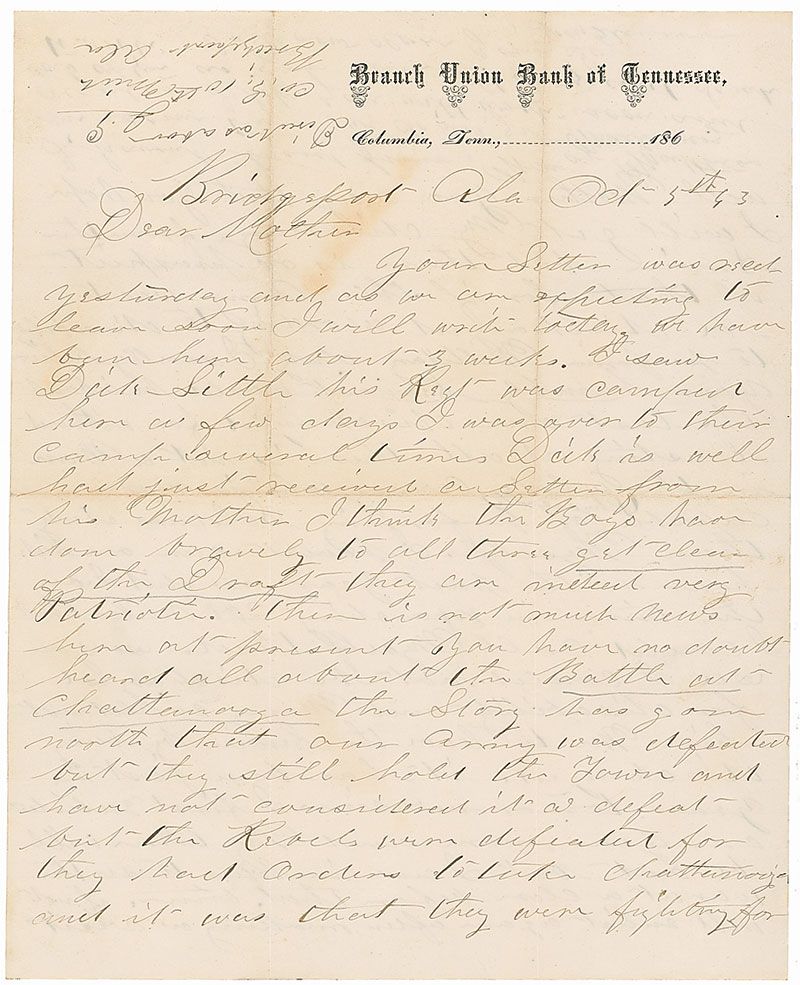 Branch Union Bank of Tennessee,
Columbia, Tenn., 186
Direct as above
Co. 10th Mich
Bridgeport Ala
Bridgeport Ala Oct 5th 63
Dear Mother
Your Letter was recd
yesturday and as we are expecting to
leave soon I will write today we have
been here about 3 weeks. I saw
Dick Little his Regt was camped
here a few days I was over to their
camp several times Dick is well
had just received a Letter from
his Mother I think the Boys have
done bravely to all three get clear
of the Draft they are indeed very
Patriotic. There is not much News
here at present You have no doubt
heard all about the Battle at
Chattanooga the Story has gone
north that our Army was defeated
but they still hold the Town and
have not considered it a defeat
but the Rebels were defeated for
they had Orders to take Chattanooga
and it was that they were fighting for